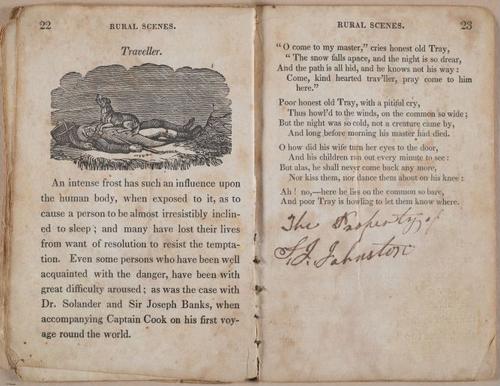 22 RURAL SCENES.
Traveller.
An intense frost has such an influence upon
the human body, when exposed to it, as to
cause a person to be almost irresistibly inclin-
ed to sleep; and many have lost their lives
from want of resolution to resist the tempta-
tion. Even some persons who have been well
acquainted with the danger, have been with
great difficulty aroused; as was the case with
Dr. Solander and Sir Joseph Banks, when
accompanying Captain Cook on his first voy-
age round the world.
RURAL SCENES. 23
“O come to my master,” cries honest old Tray,
“The snow falls apace, and the night is so drear,
And the path is all hid, and he knows not his way:
Come, kind hearted trav'ller, pray come to him
here.”
Poor honest old Tray, with a pitiful cry,
Thus howl'd to the winds, on the common so wide;
But the night was so cold, not a creature came by,
And long before morning his master had died.
O how did his wife turn her eyes to the door,
And his children run out every minute to see:
But alas, he shall never come back any more,
Nor kiss them, nor dance them about on his knee:
Ah! no,—here he lies on the common so bare,
And poor Tray is howling to let them know where.
The Property of
Johnston